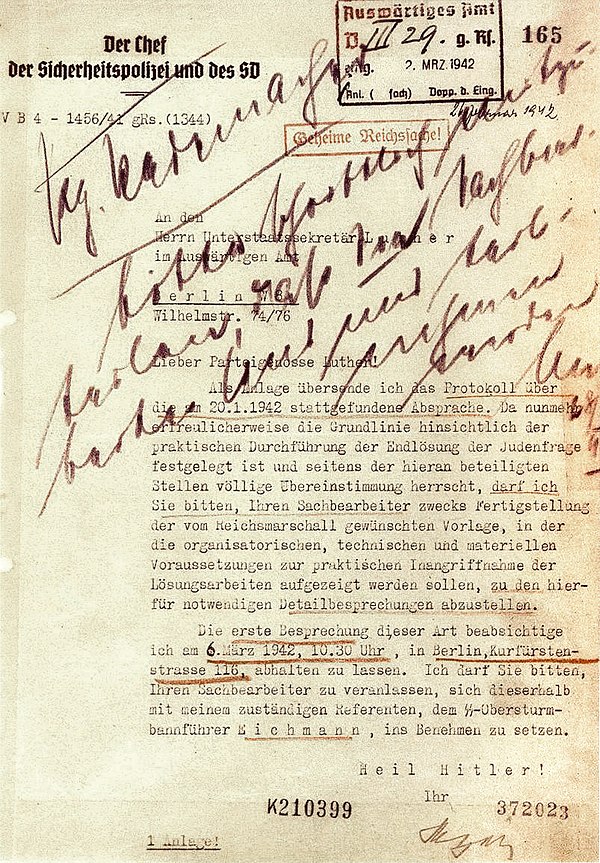 Der Chef
der Sicherheitspolizei und des SD
Auswärtiges Amt
D III 29. g. Rs.
eing. 2. MRZ. 1942
Anl. ( fach) Dopp. d. Eing.
165
V B 4 - 1456/41 gRs.(1344)
1942
Geheime Reichssache!
An den
Herrn Unterstaatssekretär L u t h e r
im Auswärtigen Amt
B e r l i n
Wilhelmstr. 74/76
Lieber Parteigenosse Luther!
Als Anlage übersende ich das Protokoll über
die am 20.1.1942 stattgefundene Absprache. Da nunmehr
erfreulicherweise die Grundlinie hinsichtlich der
praktischen Durchführung der Endlösung der Judenfrage
festgelegt ist und seitens der hieran beteiligten
Stellen völlige Übereinstimmung herrscht, darf ich
Sie bitten, Ihren Sachbearbeiter zwecks Fertigstellung
der vom Reichsmarschall gewünschten Vorlage, in der
die organisatorischen, technischen und materiellen
Voraussetzungen zur praktischen Inangriffnahme der
Lösungsarbeiten aufgezeigt werden sollen, zu den hier-
für notwendigen Detailbesprechungen abzustellen.
Die erste Besprechung dieser Art beabsichtige
ich am 6.März 1942, 10.30 Uhr , in Berlin,Kurfürsten-
strasse 116, abhalten zu lassen. Ich darf Sie bitten,
Ihren Sachbearbeiter zu veranlassen, sich dieserhalb
mit meinem zuständigen Referenten, dem SS-Obersturm-
bannführer E i c h m a n n , ins Benehmen zu setzen.
H e i l  H i t l e r !
Ihr
K210399
372023
1 Anlage!